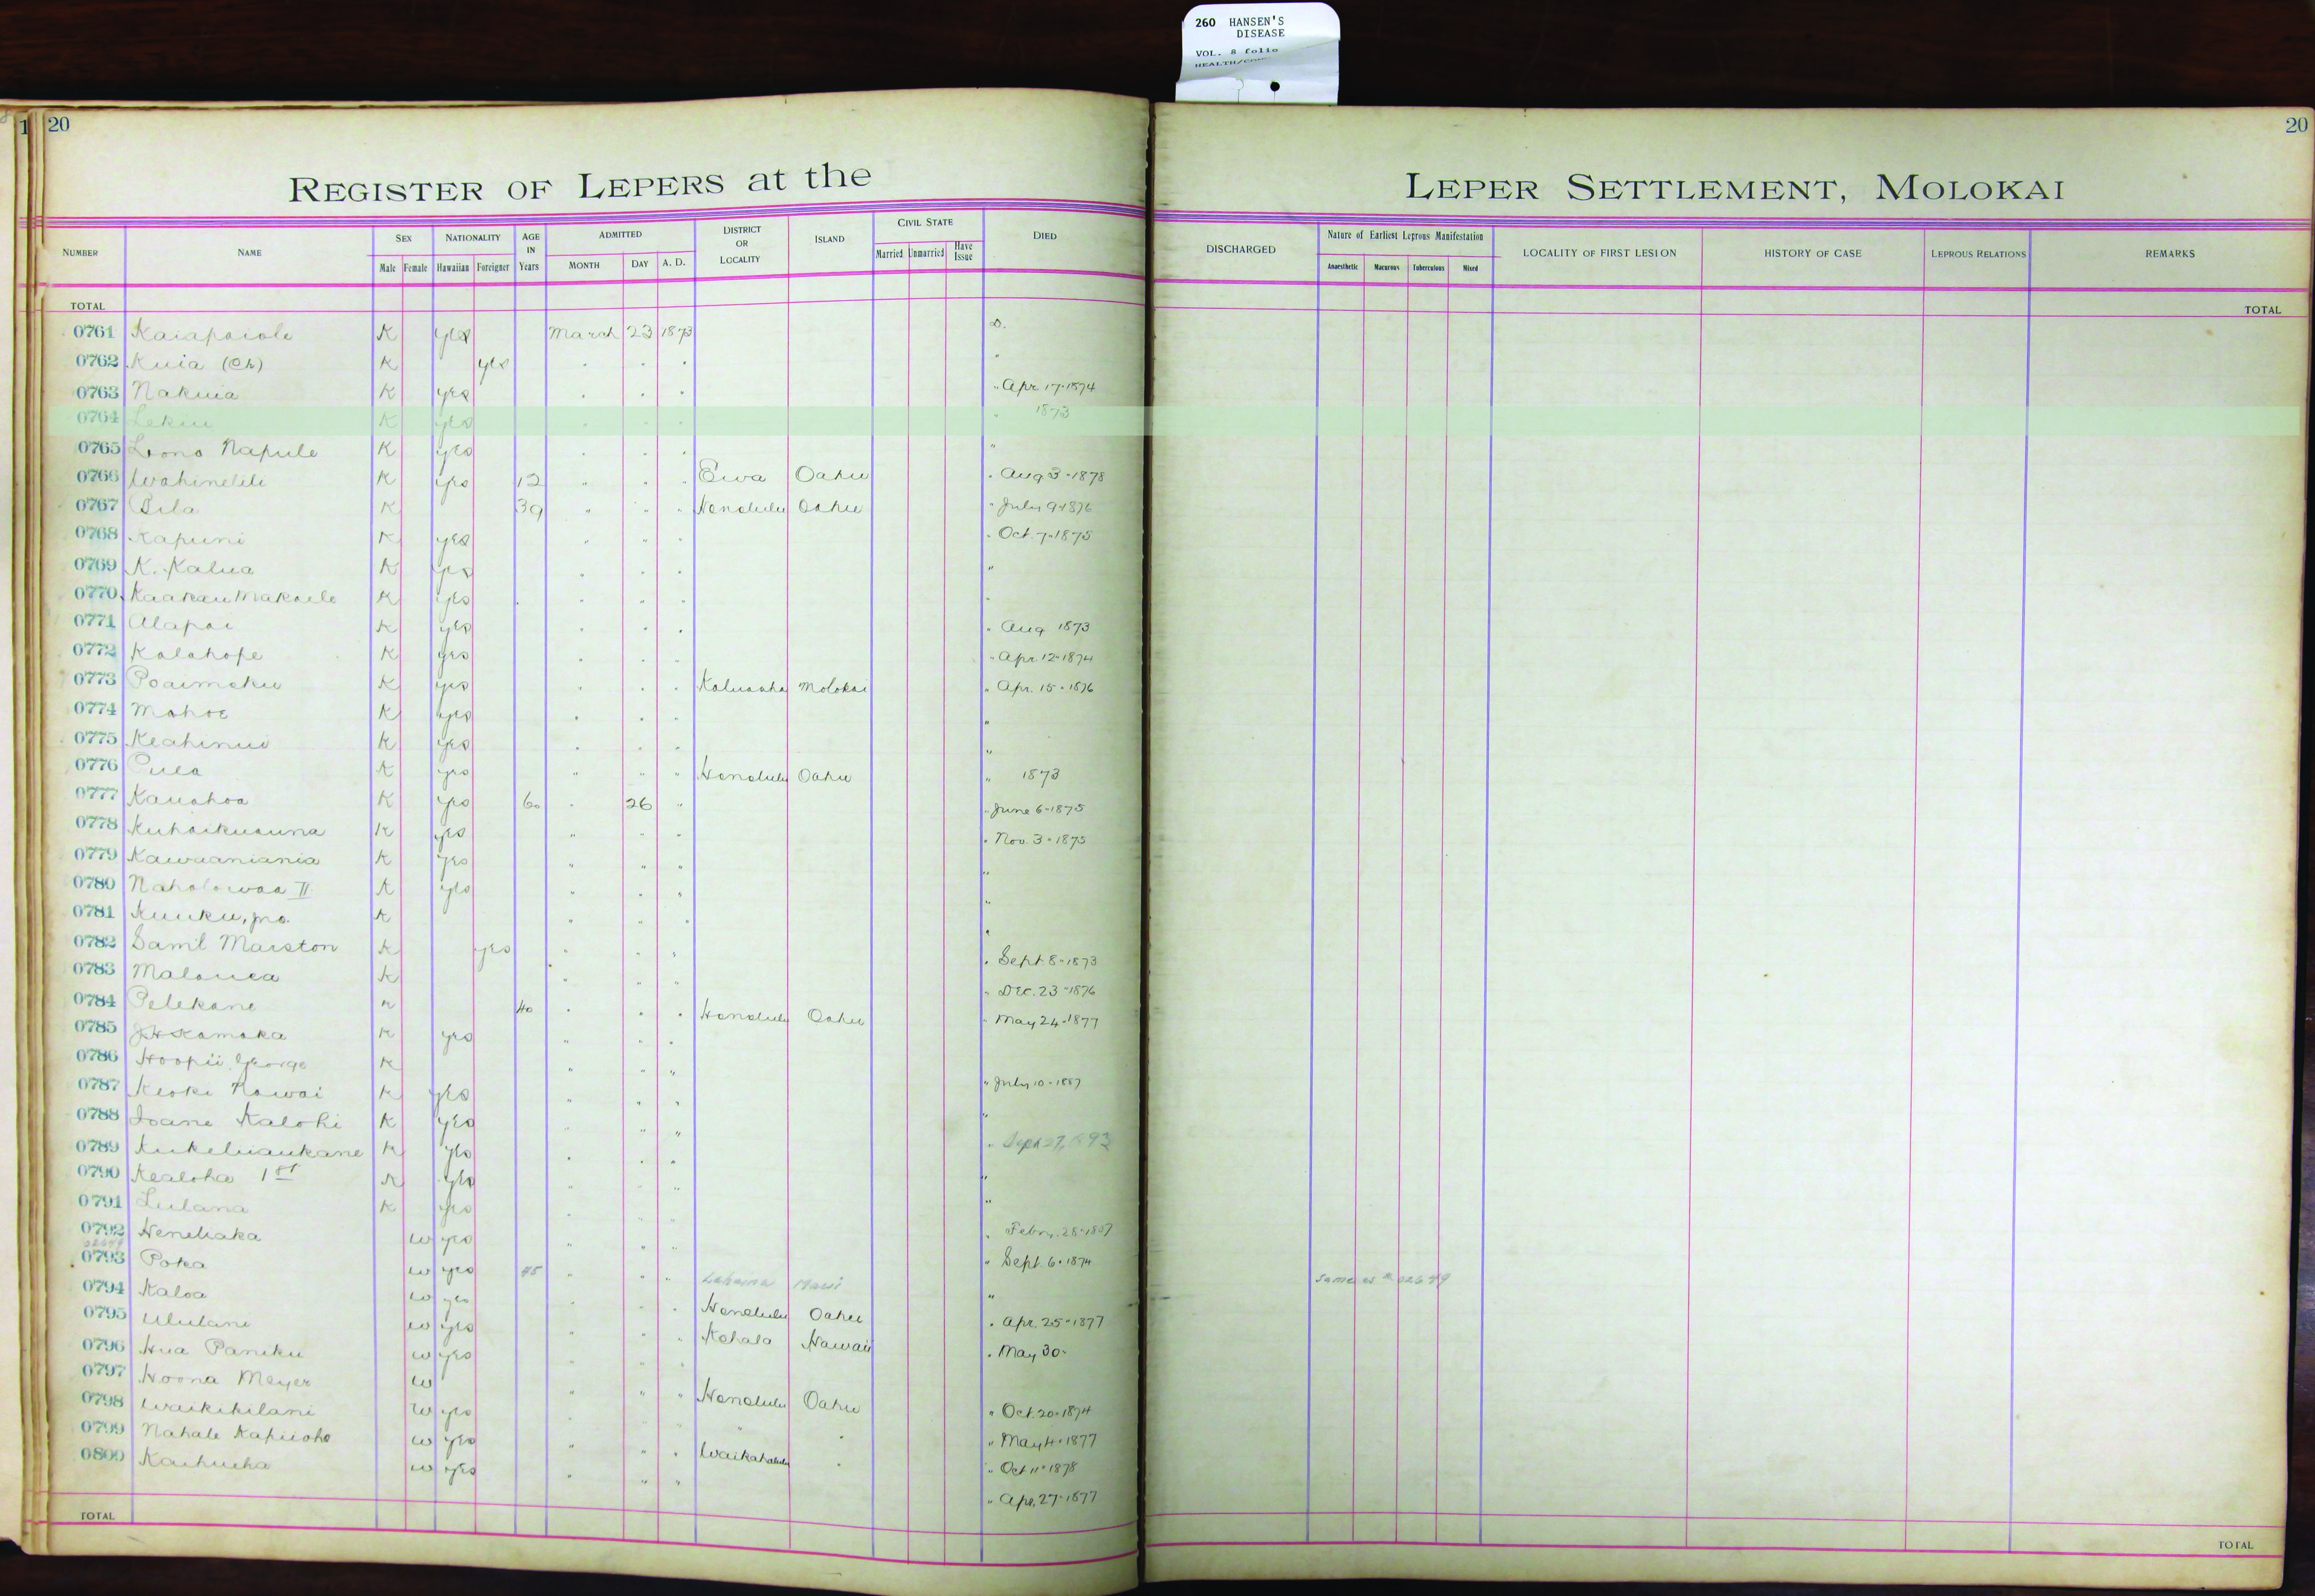 260 HANSEN'S
DISEASE
VOL. 8 folio
1 20
20
REGISTER OF LEPERS at the LEPER SETTLEMENT, MOLOKAI
NUMBER NAME SEX Male Female NATIONALITY Hawaiian Foreigner AGE IN Years ADMITTED MONTH DAY A. D. DISTRICT OR LOCALITY ISLAND CIVIL STATE Married Unmarried Have Issue DIED DISCHARGED Nature of Earliest Leprous Manifestation Anaesthetic Macurous Tuberculous Mixed LOCALITY OF FIRST LESION HISTORY OF CASE LEPROUS RELATIONS REMARKS
TOTAL TOTAL
0761 Kaiapaiole K yes March 23 1873 D.
0762 Kuia (Ch) K yes " " " "
0763 Nakuia K yes " " " " Apr. 17-1874
0764 Lekiu K yes " " " " 1873
0765 Lono Napule K yes " " " "
0766 Wahinelili K yes 12 " " " Ewa Oahu " Aug 3-1878
0767 Pila K 39 " " " Honolulu Oahu " July 9-1876
0768 Kapuni K yes " " " " Oct. 7-1875
0769 K. Kalua K yes " " " "
0770 Kaakau Makaele K yes " " " "
0771 Alapai K yes " " " " Aug 1873
0772 Kalahope K yes " " " " Apr. 12-1874
0773 Poaimoku K yes " " " Kaluaaha Molokai " Apr. 15-1876
0774 Mahoe K yes " " " "
0775 Keahinui K yes " " " "
0776 Pula K yes " " " Honolulu Oahu " 1873
0777 Kauahoa K yes 60 " 26 " " June 6-1875
0778 Kuhaikuauna K yes " " " " Nov. 3-1875
0779 Kawaaniania K yes " " " "
0780 Naholowaa II K yes " " " "
0781 Kuuku, K " " " "
0782 Saml Marston K yes " " " " Sept 8-1873
0783 Malanea K " " " " Dec. 23-1876
0784 Pelekane K 40 " " " Honolulu Oahu " May 24-1877
0785 J.H. Kamaka K yes " " "
0786 Hoopii George K " " " " July 10-1887
0787 Keoki Nawai K yes " " " "
0788 Ioane Kalohi K yes " " " " Sept 27, 1893
0789 Kukeluaukane K yes " " " "
0790 Kealoha 1st K yes " " " "
0791 Lulana K yes " " " Febr. 28-1887
0792 Henehaka W yes " " " " Sept. 6-1874
02649
0793 Poka W yes 45 " " " Lahaina Maui " same as # 02649
0794 Kaloa W yes " " " Honolulu Oahu " Apr. 25-1877
0795 Ululani W yes " " " Kohala Hawaii " May 30-
0796 Hua Paniku W yes " " "
0797 Hoona Meyer W " " " Honolulu Oahu " Oct. 20-1874
0798 Waikikilani W yes " " " " " " May 4-1877
0799 Nahale Kapuoho W yes " " " Waikahalulu " " Oct 11-1878
0800 Kaihueha W yes " " " " Apr. 27-1877
TOTAL TOTAL